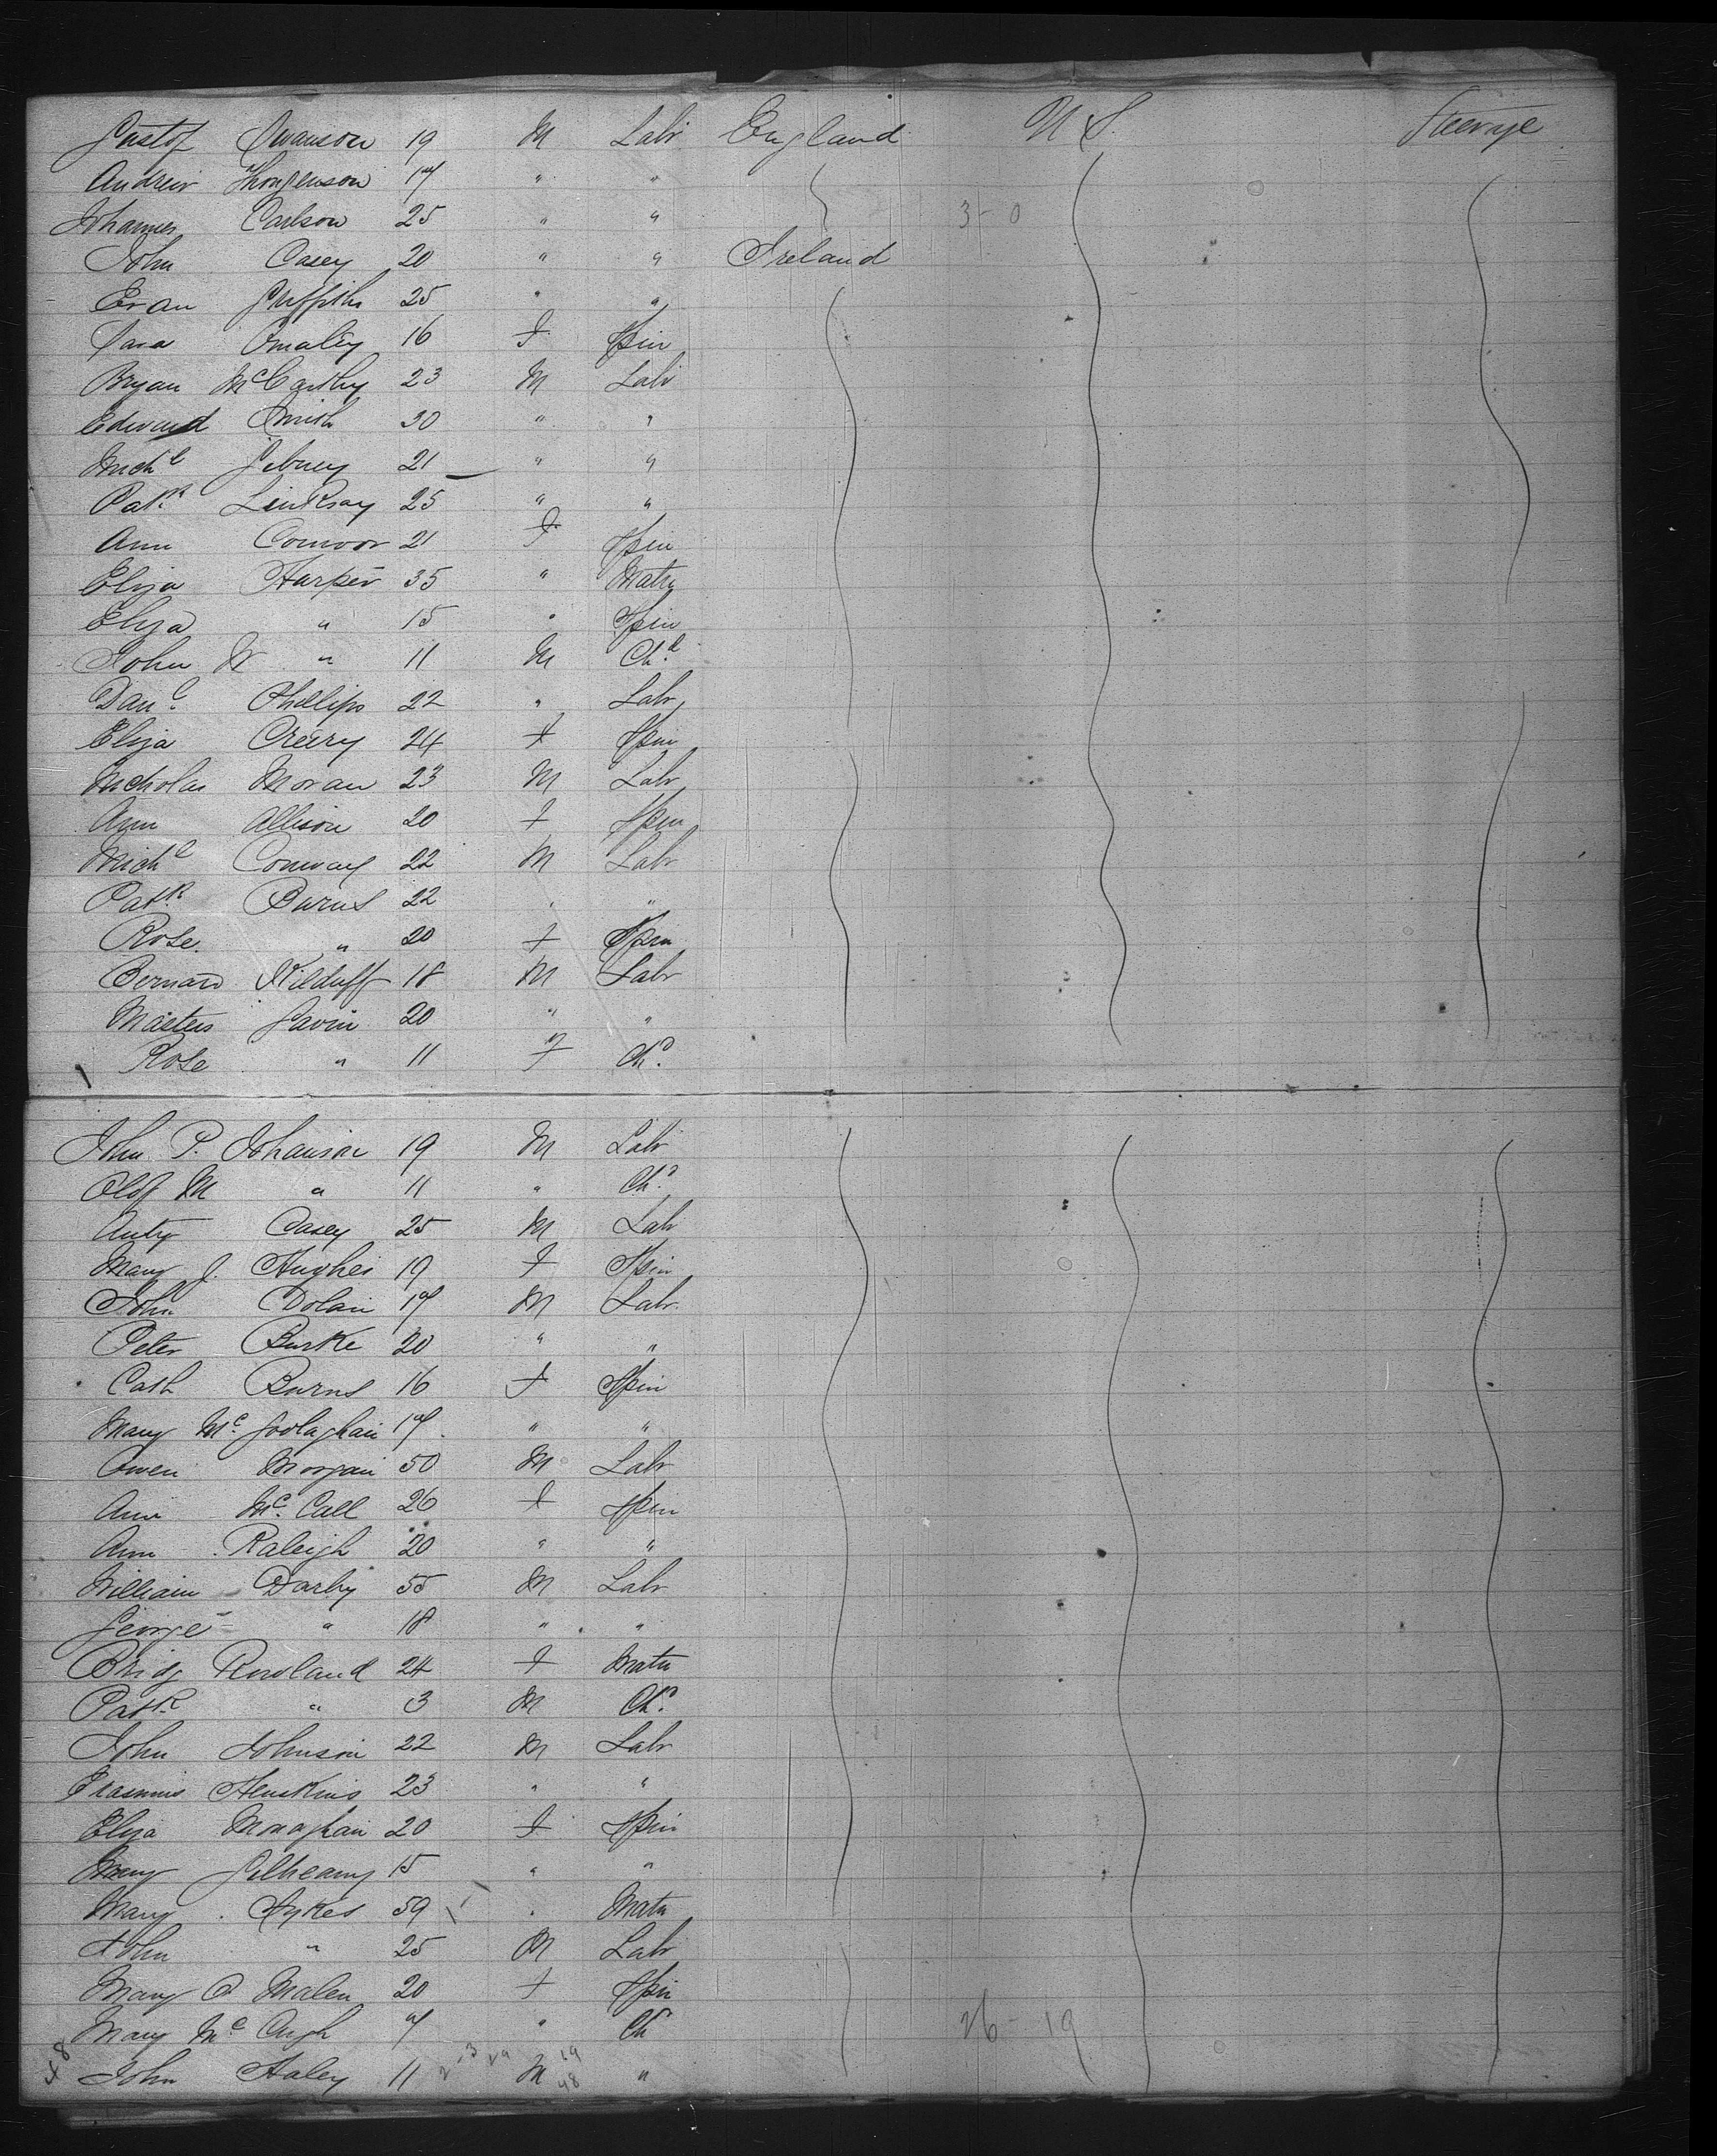 Gustof Swanson 19 M Labr England U S. Steerage
Andrew Thorgenson 17 " "
Johannes Carlson 25 " " 3-0
John Casey 20 " " Ireland
Evan Griffiths 25 " "
Sara Omaley 16 F Spin
Bryan McCarthy 23 M Labr
Edward Smith 30 " "
Michl Gibney 21 " "
Patk Lindsay 25 " "
Ann Connor 21 F Spin
Eliza Harper 35 " Matrn
Eliza " 15 " Spin
John W " 11 M Chd
Danl Phillips 22 " Labr
Eliza Creery 24 F Spin
Nicholas Moran 23 M Labr
Ann Allison 20 F Spin
Michl Conway 22 M Labr
Patk Burns 22 " "
Rose " 20 F Spin
Bernard Kilduff 18 M Labr
Gavin 20 " "
Rose " 11 F Chd
John P. Johanson 19 M Labr
Olof M " 11 " Chd
Anty Casey 25 M Labr
Mary J. Hughes 19 F Spin
John Dolan 17 M Labr
Peter Burke 20 " "
Cath Burns 16 F Spin
Mary Mc Goolaghan 17 " "
Owen Morgan 50 M Labr
Ann Mc Call 26 F Spin
Ann Raleigh 20 " "
William Darby 55 M Labr
George " 18 " "
Bridg Rowland 24 F Matn
Patk " 3 M Chd
John Johnson 22 M Labr
Erasmus 23 " "
Eliza Monaghan 20 F Spin
Mary Gilheany 15 " "
Mary Sykes 59 " Matn
John " 25 M Labr
Mary O Malen 20 F Spin
Mary Mc Cugh 7 " Chd 26-19
48 John Haley 11 M "